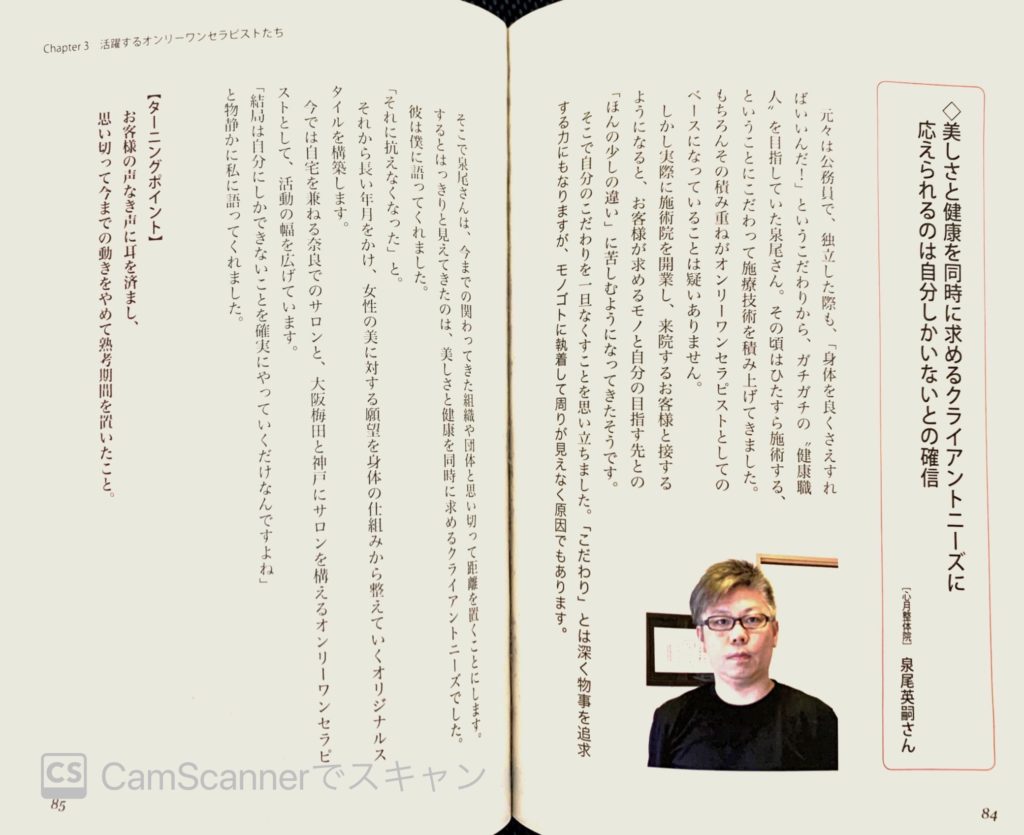 ◇美しさと健康を同時に求めるクライアントニーズに
応えられるのは自分しかいないとの確信
［心月整体院］ 泉尾英嗣さん
元々は公務員で、独立した際も、「身体を良くさえすれ
ばいいんだ！」というこだわりから、ガチガチの〝健康職
人〟を目指していた泉尾さん。その頃はひたすら施術する、
ということにこだわって施療技術を積み上げてきました。
もちろんその積み重ねがオンリーワンセラピストとしての
ベースになっていることは疑いありません。
しかし実際に施術院を開業し、来院するお客様と接する
ようになると、お客様が求めるモノと自分の目指す先との
「ほんの少しの違い」に苦しむようになってきたそうです。
そこで自分のこだわりを一旦なくすことを思い立ちました。「こだわり」とは深く物事を追求
する力にもなりますが、モノゴトに執着して周りが見えなく原因でもあります。
84
Chapter 3 活躍するオンリーワンセラピストたち
そこで泉尾さんは、今までの関わってきた組織や団体と思い切って距離を置くことにします。
するとはっきりと見えてきたのは、美しさと健康を同時に求めるクライアントニーズでした。
彼は僕に語ってくれました。
「それに抗えなくなった」と。
それから長い年月をかけ、女性の美に対する願望を身体の仕組みから整えていくオリジナルス
タイルを構築します。
今では自宅を兼ねる奈良でのサロンと、大阪梅田と神戸にサロンを構えるオンリーワンセラピ
ストとして、活動の幅を広げています。
「結局は自分にしかできないことを確実にやっていくだけなんですよね」
と物静かに私に語ってくれました。
【ターニングポイント】
お客様の声なき声に耳を済まし、
思い切って今までの動きをやめて熟考期間を置いたこと。
85
CS CamScannerでスキャン